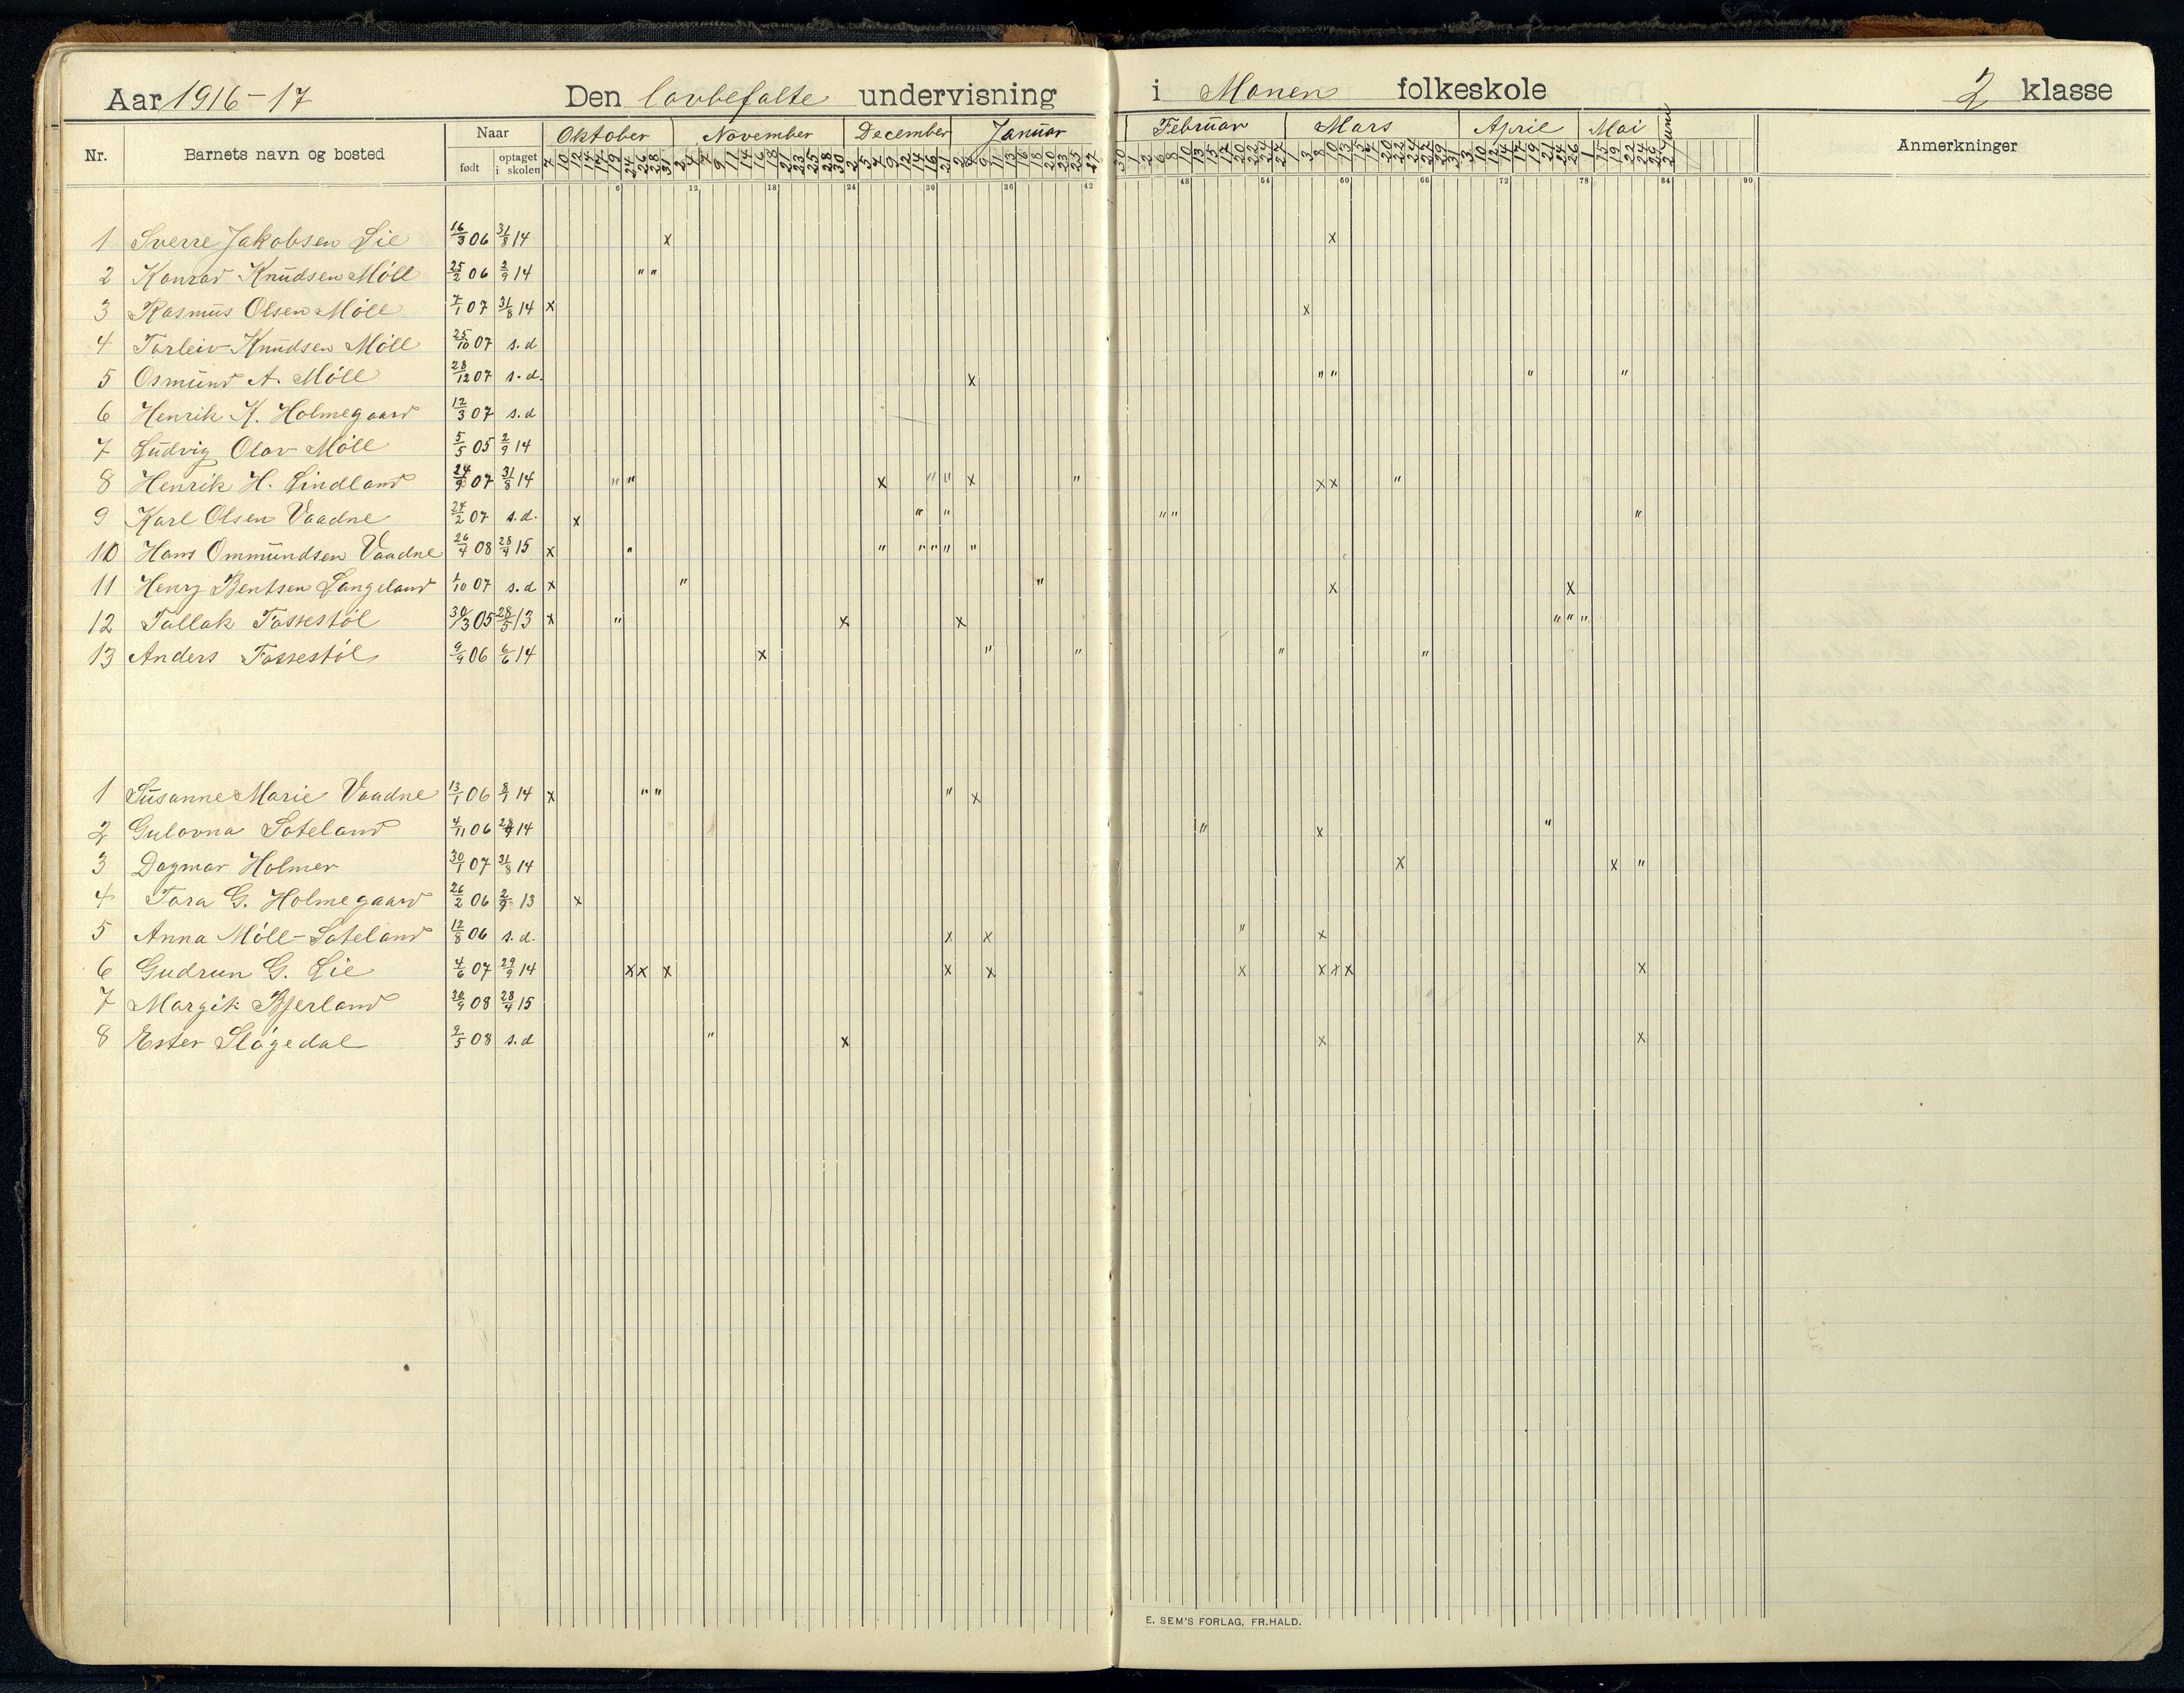 Aar 1916-17 Den lovbefalte undervisning i Monen folkeskole 2 klasse
Nr. Barnets navn og bosted Naar født optaget i skolen Oktober November December Januar Februar Mars April Mai Juni Anmerkninger
6 12 18 24 30 36 42 48 54 60 66 72 78 84 90
1 Sverre Jakobsen Lie 16/3 06 31/8 14 x x
2 Konrad Knudsen Möll 25/2 06 2/9 14 " "
3 Rasmus Olsen Möll 7/1 07 31/8 14 x x
4 Torleiv Knudsen Möll 25/10 07 s.d
5 Osmund A. Möll 28/12 07 s.d. x " " " "
6 Henrik K. Holmegaard 12/3 07 s.d
7 Ludvig Olav Möll 5/5 05 2/9 14
8 Henrik H. Lindland 24/9 07 31/8 14 " " x " " x " x x "
9 Karl Olsen Vaadne 24/2 07 s.d. x " " " " "
10 Hans Ommundsen Vaadne 26/4 08 28/4 15 x " " " " " "
11 Henry Bentsen Langeland 1/10 07 s.d x " " x x
12 Tallak Fossestöl 30/3 05 28/5 13 x " x x " " "
13 Anders Fossestöl 9/9 06 6/6 14 x " " " "
1 Susanne Marie Vaadne 13/1 06 8/1 14 x " " " x
2 Gulovna Loteland 4/11 06 28/4 14 " x "
3 Dagmar Holmer 30/1 07 31/8 14 x x "
4 Tora G. Holmegaard 26/2 06 2/9 13 x
5 Anna Möll-Loteland 12/8 06 s.d. x x " x
6 Gudrun G. Lie 4/6 07 29/9 14 x x x x x x x x x x
7 Margit Bjerland 30/9 08 28/4 15
8 Ester Slögedal 9/5 08 s.d " x x x
E. SEM'S FORLAG, FR.HALD.